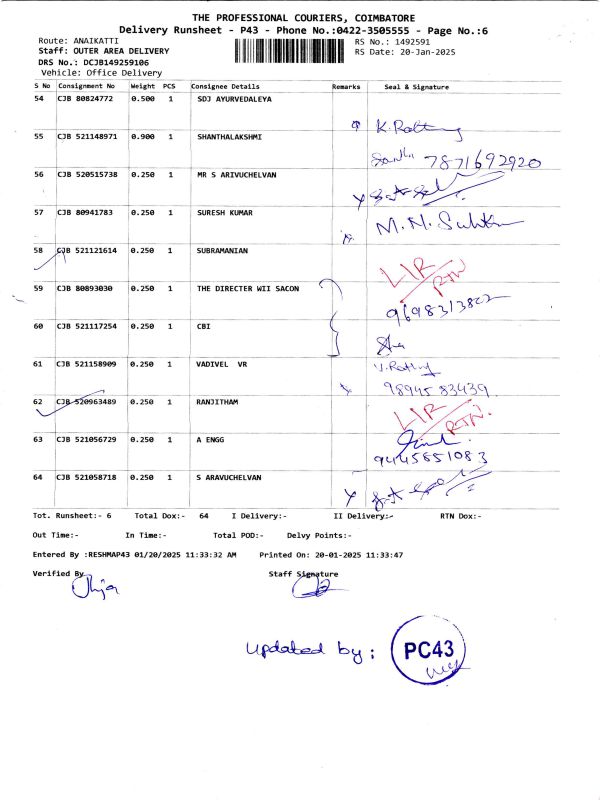 THE PROFESSIONAL COURIERS, COIMBATORE
Delivery Runsheet - P43 - Phone No.:0422-3505555 - Page No.:6
Route: ANAIKATTI
RS No.: 1492591
Staff: OUTER AREA DELIVERY
RS Date: 20-Jan-2025
DRS No.: DCJB149259106
Vehicle: Office Delivery
S No Consignment No Weight PCS Consignee Details Remarks Seal & Signature
54 CJB 80824772 0.500 1 SDJ AYURVEDALEYA
K.
55 CJB 521148971 0.900 1 SHANTHALAKSHMI
7871692920
56 CJB 520515738 0.250 1 MR S ARIVUCHELVAN
57 CJB 80941783 0.250 1 SURESH KUMAR
M.N.
58 CJB 521121614 0.250 1 SUBRAMANIAN
LIR
RTN
59 CJB 80893030 0.250 1 THE DIRECTER WII SACON
9698313822
60 CJB 521117254 0.250 1 CBI
61 CJB 521158909 0.250 1 VADIVEL VR
9894583439
62 CJB 520963489 0.250 1 RANJITHAM
LIR
RTN.
63 CJB 521056729 0.250 1 A ENGG
9445851083
64 CJB 521058718 0.250 1 S ARAVUCHELVAN
Tot. Runsheet:- 6 Total Dox:- 64 I Delivery:- II Delivery:- RTN Dox:-
Out Time:- In Time:- Total POD:- Delvy Points:-
Entered By :RESHMAP43 01/20/2025 11:33:32 AM Printed On: 20-01-2025 11:33:47
Verified By Staff Signature
Updated by: PC43